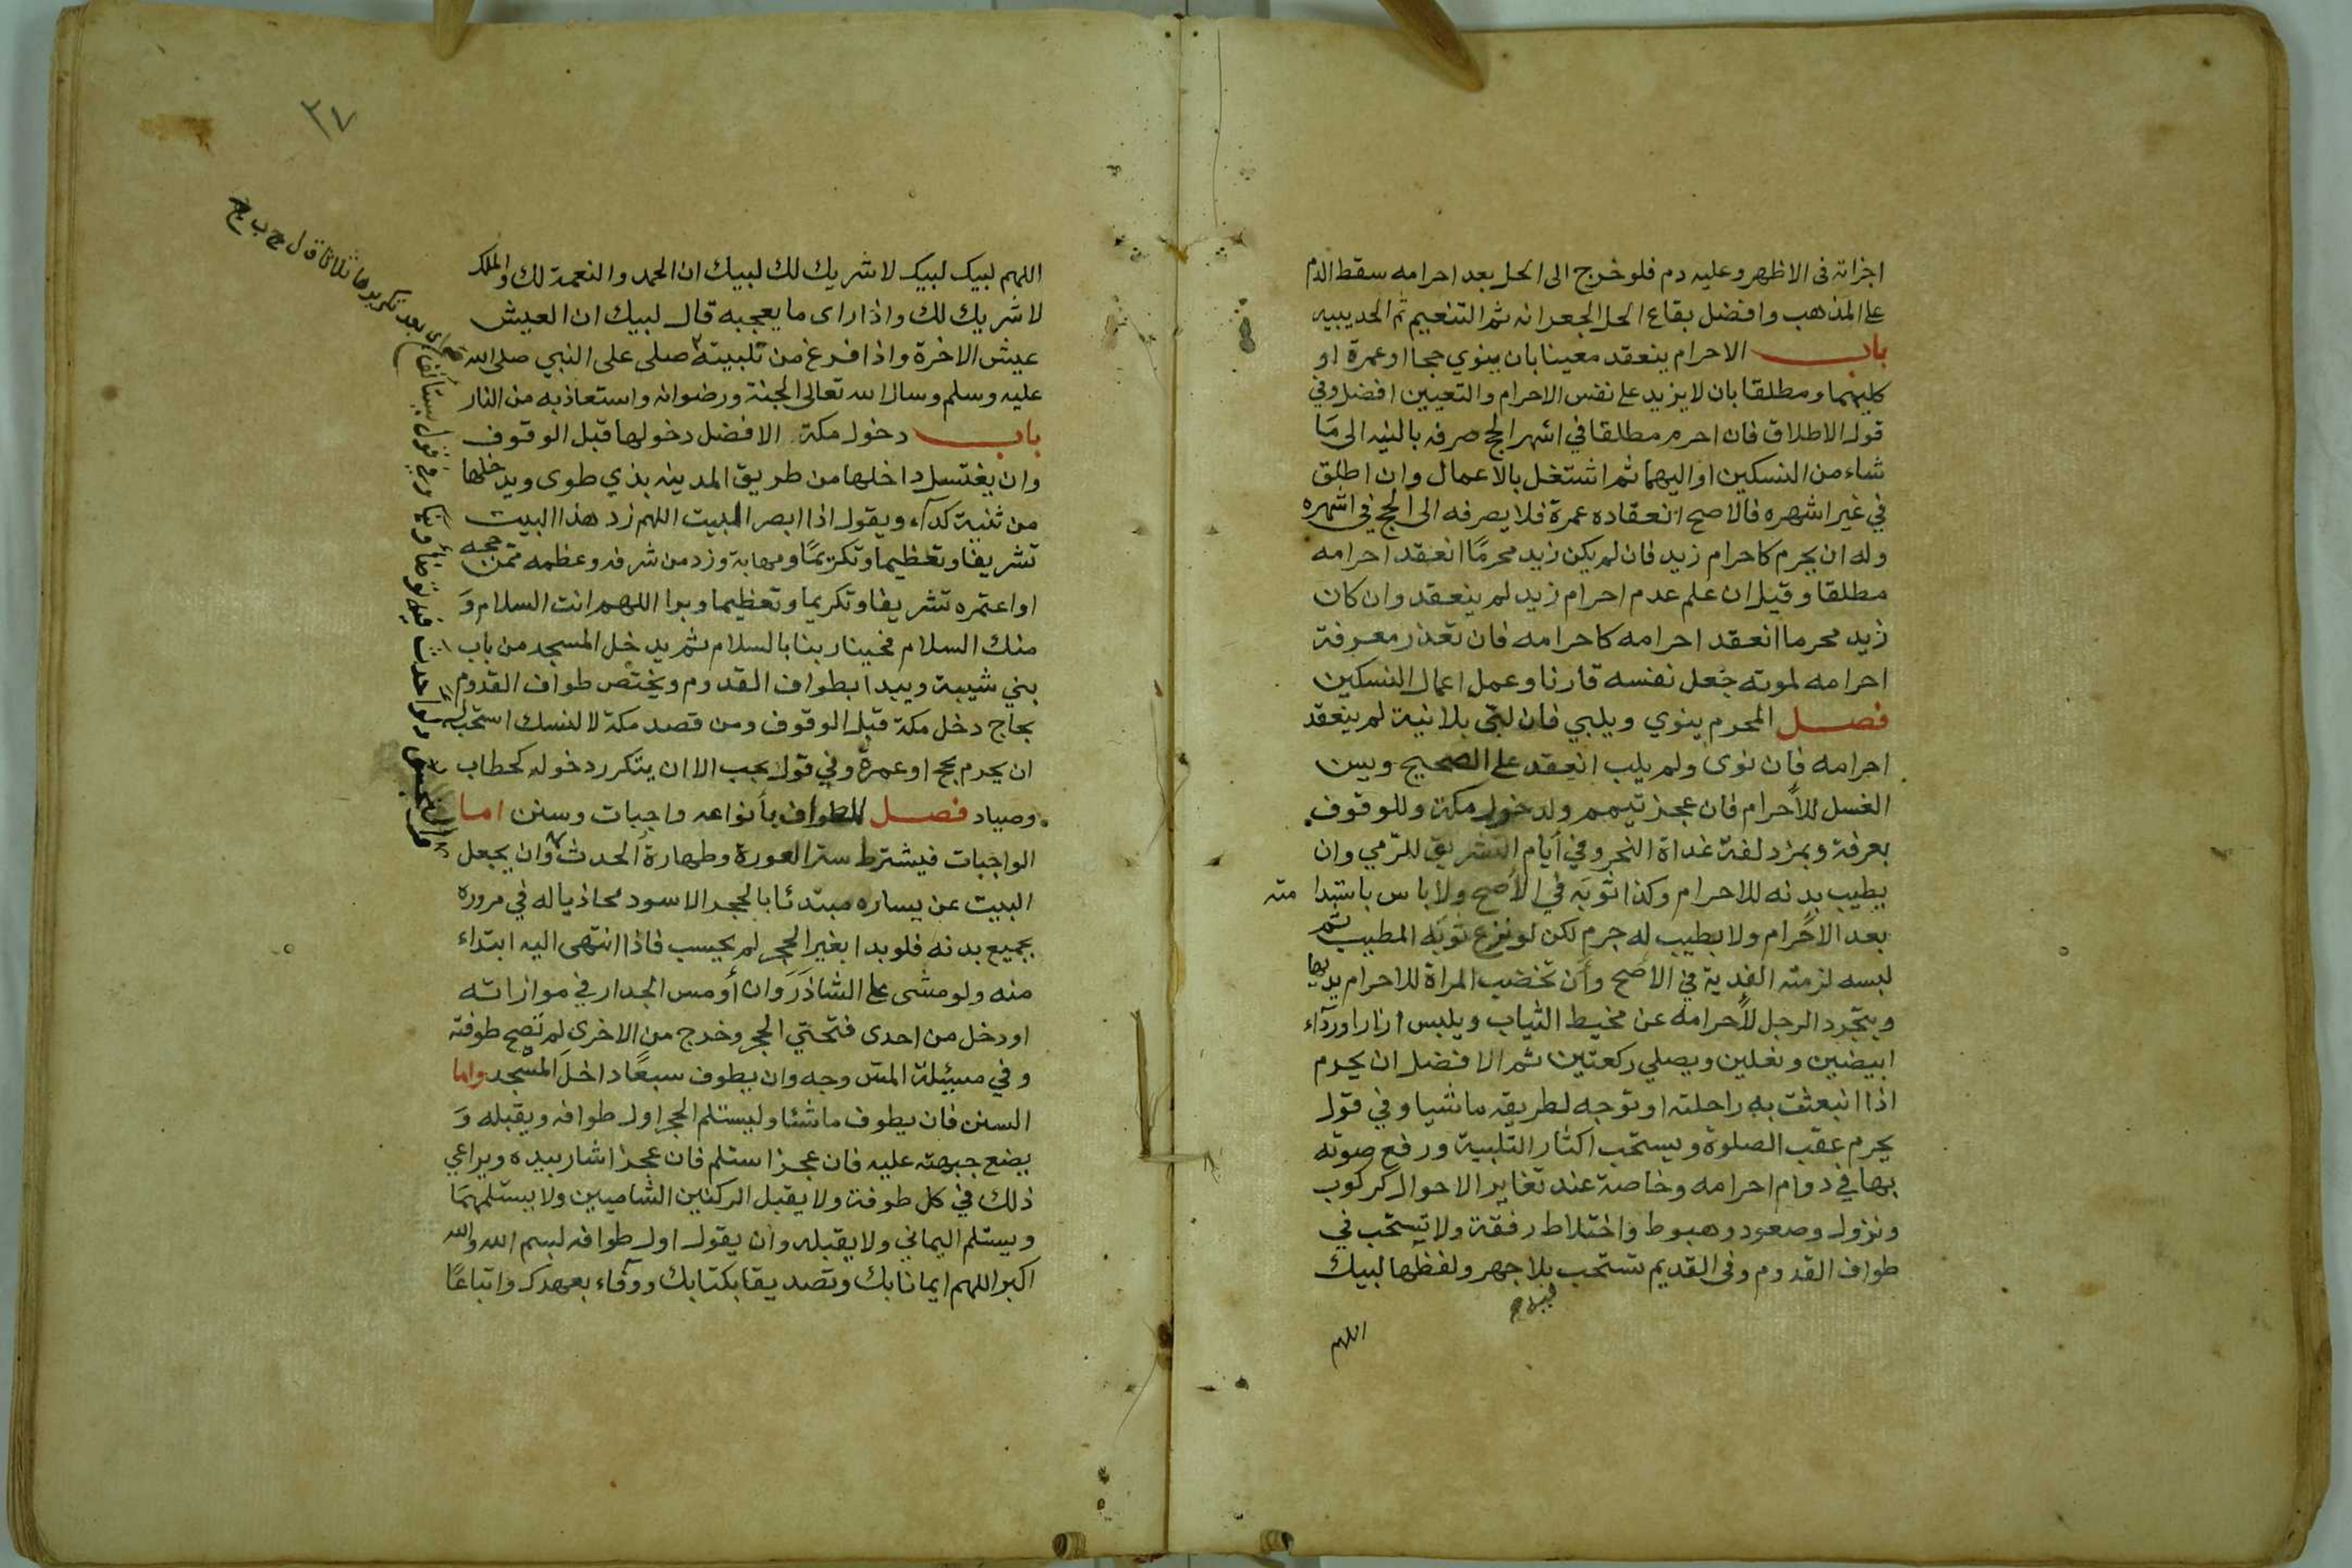 اجزاته فى الاظهر وعليه دم فلو خرج الى الحل بعد احرامه سقط الدم
على المذهب وافضل بقاع الحل الجعرانه ثم التنعيم ثم الحديبيه
باب الاحرام ينعقد معينا بان ينوي حجا او عمرة او
كليهما ومطلقا بان لا يزيد على نفس الاحرام والتعيين افضل وفي
قول الاطلاق فان احرم مطلقا في اشهر الحج صرفه بالنيه الى مَا
شاء من النسكين او اليهما ثم اشتغل بالاعمال وان اطلق
في غير اشهره فالاصح انعقاده عمرة فلا يصرفه الى الحج في اشهره
وله ان يحرم كاحرام زيد فان لم يكن زيد محرمًا انعقد احرامه
مطلقا وقيل ان علم عدم احرام زيد لم ينعقد وان كان
زيد محرما انعقد احرامه كاحرامه فان تعذر معرفة
احرامه لموته جعل نفسه قارنا وعمل اعمال النسكين
فصل المحرم ينوي ويلبي فان لبّى بلا نية لم ينعقد
احرامه فان نوى ولم يلب انعقد على الصحيح ويسن
الغسل للأحرام فان عجز تيمم ولدخول مكة وللوقوف
بعرفة وبمزدلفة غداة النحر وفي أيام التشريق للرّمي وان
يطيب بدنه للاحرام وكذا ثوبَه في الأصح ولا باس باستدا مته
بعد الاحرام ولا بطيب له جرم لكن لو نزع ثوبه المطيب ثم
لبسه لزمته الفدية في الأصح وأن تخضب المراة للاحرام يديها
ويتجرد الرجل لأحرامه عن مخيط الثياب ويلبس ازارا ورداء
ابيضين ونعلين ويصلي ركعتين ثم الافضل ان يحرم
اذا انبعثت به راحلته او توجه لطريقه ماشيا وفي قول
يحرم عقب الصلوة ويستحب اكثار التلبية ورفع صوته
بها في دوام احرامه وخاصة عند تغاير الاحوال كركوب
ونزول وصعود وهبوط واختلاط رفقة ولا تستحب في
طواف القدوم وفى القديم تستحب بلا جهر ولفظها لبيك
اللهم
٣٧
اللهم لبيك لبيك لا شريك لك لبيك ان الحمد والنعمة لك والملك
لا شريك لك واذا راى ما يعجبه قال لبيك ان العيش
عيش الاخرة واذا فرغ من تلبيته صلى على النبي صلى الله
عليه وسلم وسال الله تعالى الجنة ورضوانه واستعاذ به من النار
باب دخول مكة الافضل دخولها قبل الوقوف
وان يغتسل داخلها من طريق المدينه بذي طوى ويدخلها
من ثنية كدآء ويقول اذا ابصر البيت اللهم زد هذا البيت
تشريفا وتعظيما وتكريمًا ومهابة وزد من شرفه وعظمه ممن حجه
او اعتمره تشريفا وتكريما وتعظيما وبرا اللهم انت السلام وَ
منك السلام فحينا ربنا بالسلام ثم يدخل المسجد من باب
بني شيبة ويبدا بطواف القدوم ويختص طواف القدوم
بحاج دخل مكة قبل الوقوف ومن قصد مكة لا لنسك استحب له
ان يحرم بحج او عمرة وفي قول يجب الا ان يتكرر دخوله كحطاب
وصياد فصل للطواف بأنواعه واجبات وسنن اما
الواجبات فيشترط ستر العورة وطهارة الحدث وان يجعل
البيت عن يساره مبتدئا بالحجر الاسود محاذيا له في مروره
بجميع بدنه فلو بدا بغير الحجر لم يحسب فاذا انتهى اليه ابتداء
منه ولو مشى على الشاذَرَوان أو مس الجدار في موازاته
او دخل من احدى فتحتي الحجر وخرج من الاخرى لم تصح طوفته
وفي مسئلة المسّ وجه وان يطوف سبعًا داخلَ المسجد واما
السنن فان يطوف ماشئا وليستلم الحجر اول طوافه ويقبله وَ
يضع جبهته عليه فان عجز استلم فان عجز اشار بيده ويراعي
ذلك في كل طوفة ولا يقبل الركنين الشاميين ولا يستلمهمَا
ويستلم اليماني ولا يقبله وان يقول اول طوافه بسم الله والله
اكبر اللهم ايمانا بك وتصديقا بكتابك ووفآء بعهدك واتباعًا